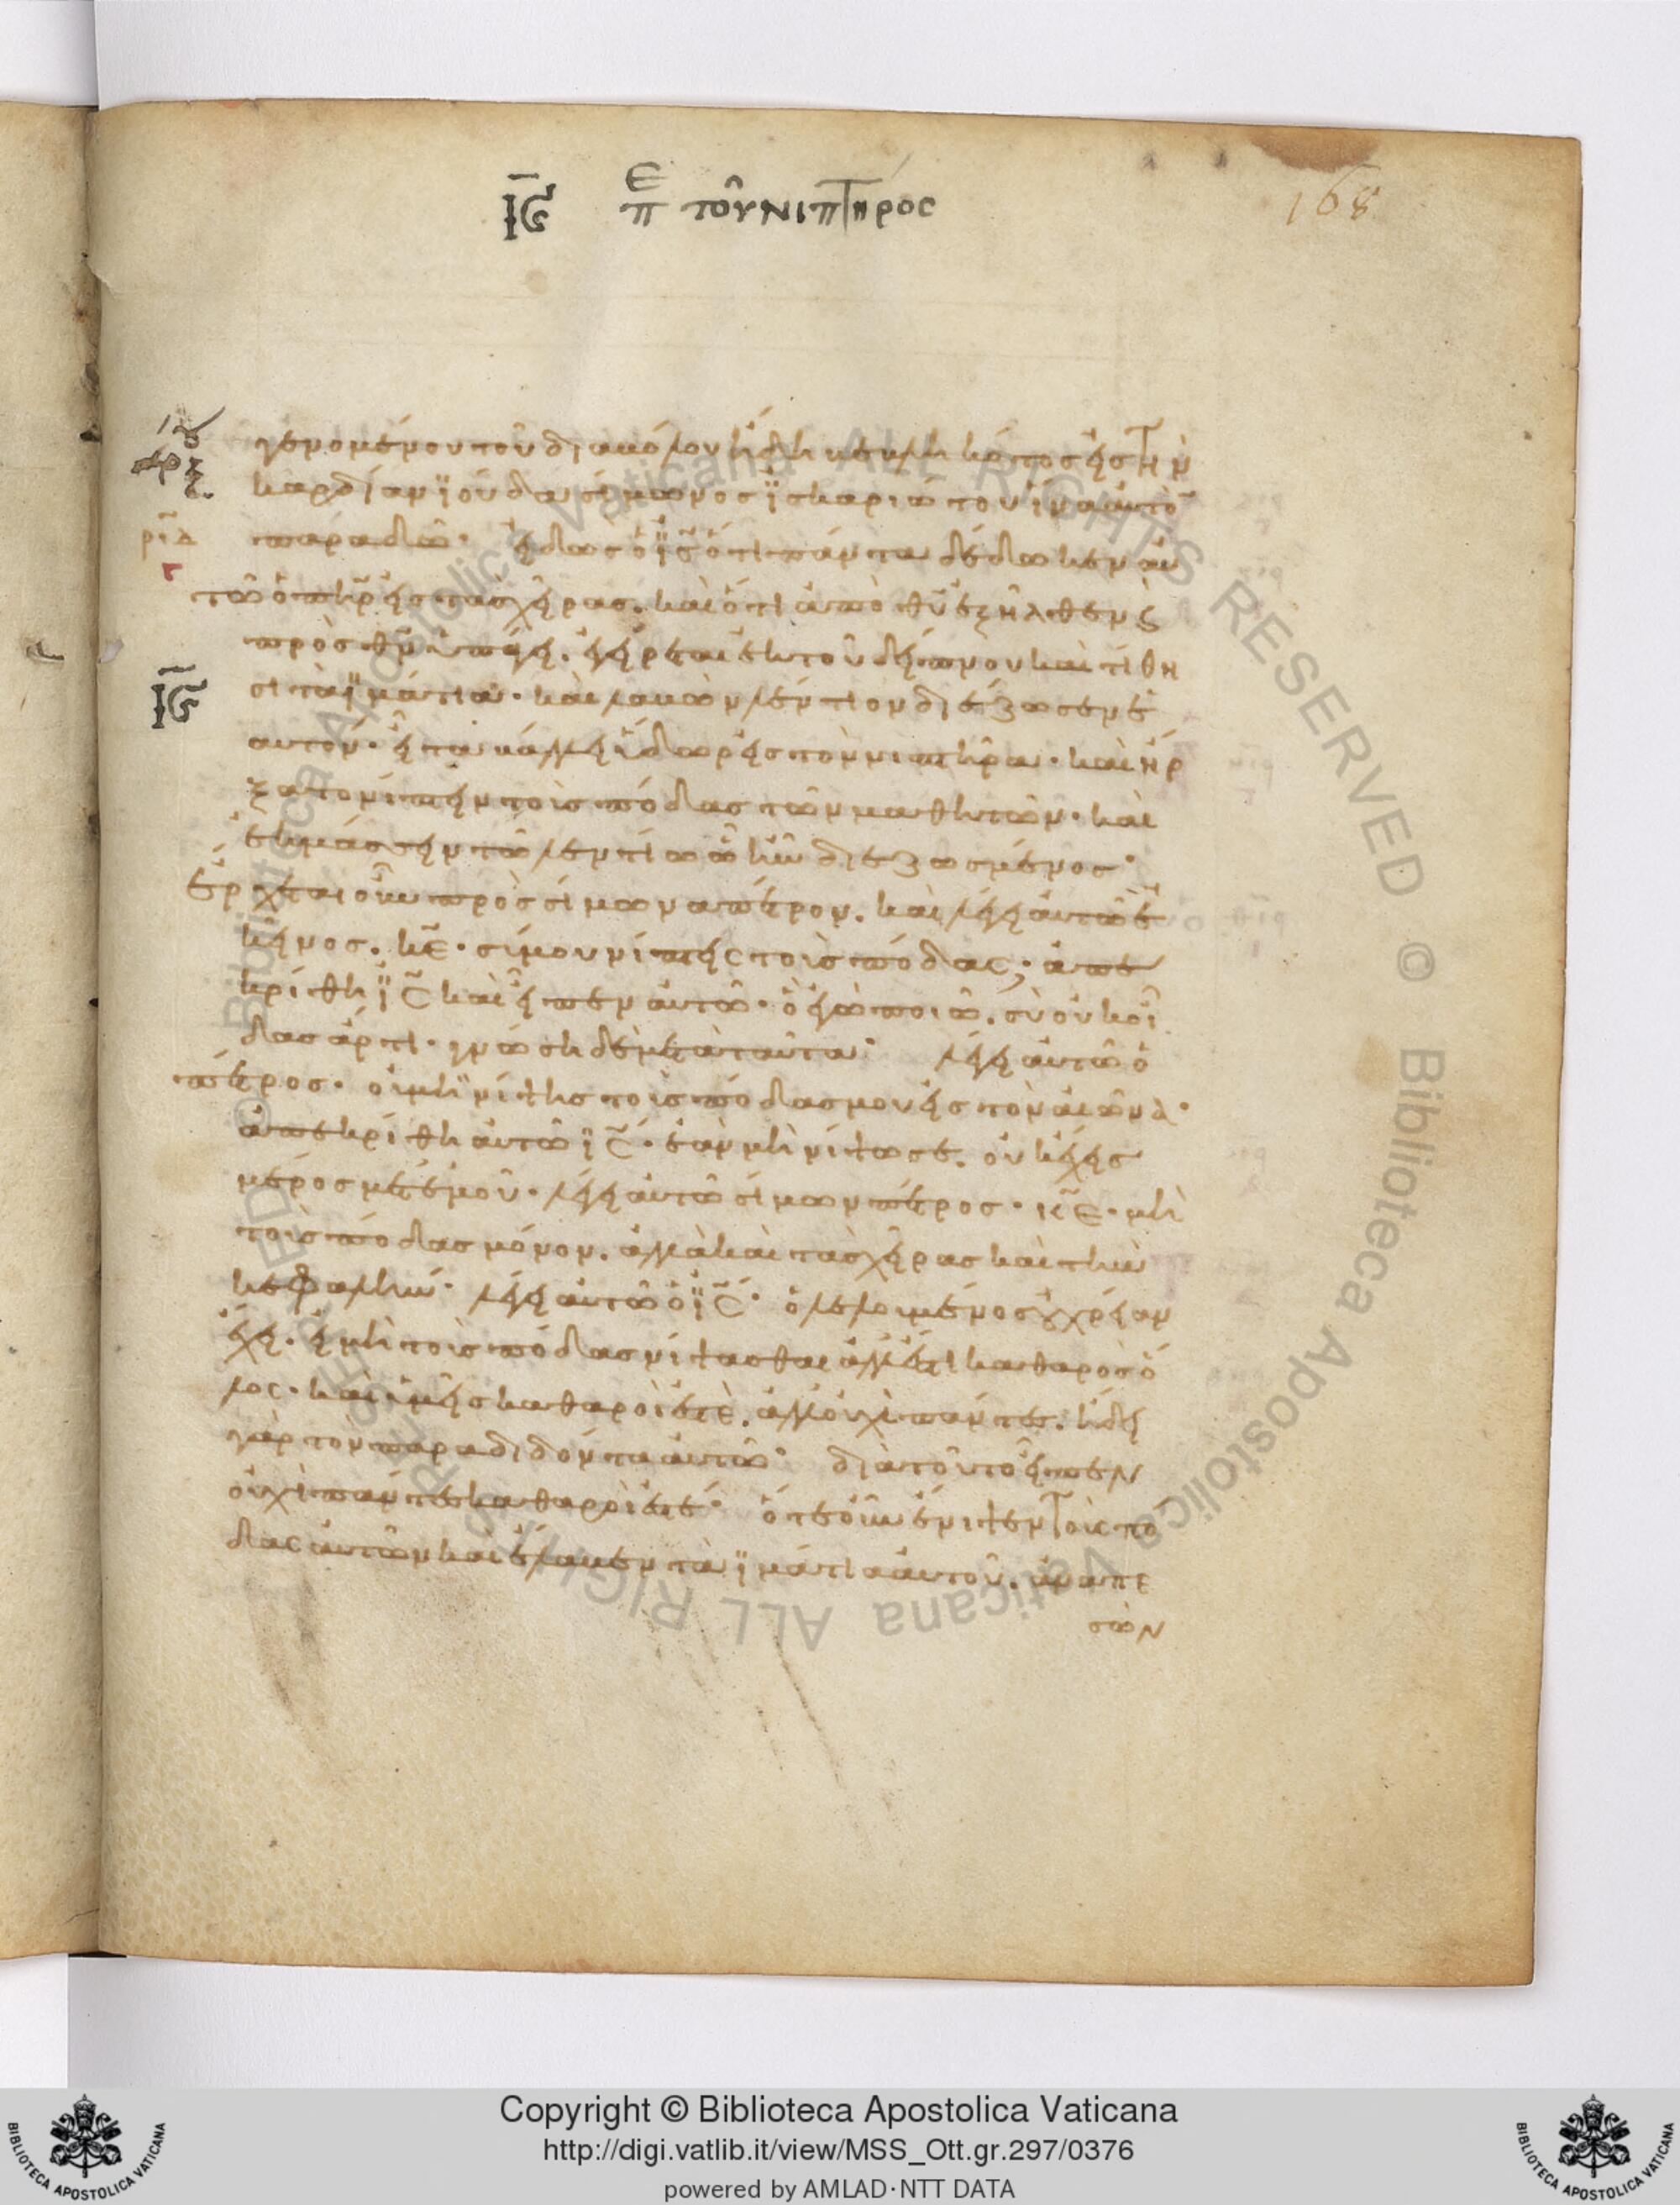 ΙϚ̄ πε τοῦ νιπτῆρος
168
γενομένου τοῦ διαβόλου ἤδη βεβληκότος εἰς τὴν
καρδίαν ϊούδα σίμωνος ϊσκαριώτου ἵνα αὐτὸ
παραδῶ· εἰδὼς ὁ ϊς̄ ὅτι πάντα δέδωκεν αὐ
ριδ
τῶ ὁ πη̄ρ εἰς τὰς χεῖρας. καὶ ὅτι ἀπὸ θῡ ἐξῆλθεν κ̀
πρὸς θν̄ ὑπάγει. ἐγείρεται ἐκ τοῦ δείπνου καὶ τίθη
ΙϚ̄
σι τὰ ϊμάτια· καὶ λαβὼν λέντιον διέζωσεν ἑ
αυτόν· εἶτα βάλλει ὕδωρ εἰς τὸν νιπτῆρα· καὶ ἤρ
ξατο νίπτειν τοὺς πόδας τῶν μαθητῶν· καὶ
ἐκμάσσειν τῶ λεντίω ὧ ἦν διεζωσμένος·
Ἔρχεται οὖν πρὸς σίμωνα πέτρον. καὶ λέγει αὐτῶ ἐ
κεῖνος. κε̄· σύ μου νίπτεις τοὺς πόδας; ἀπε
κρίθη ϊς̄ καὶ εἶπεν αὐτῶ· ὃ ἐγὼ ποιῶ. σὺ οὐκ οἶ
δας ἄρτι· γνώση δὲ μετὰ ταῦτα· λέγει αὐτῶ ὁ
πέτρος· οὐ μὴ νίψης τοὺς πόδας μου εἰς τὸν αἰῶνα·
ἀπεκρίθη αὐτῶ ϊς̄· ἐὰν μὴ νίψω σε. οὐκ ἔχεις
μέρος μετ ἐμοῦ· λέγει αὐτῶ σίμων πέτρος· κε̄· μὴ
τοὺς πόδας μόνον. ἀλλὰ καὶ τὰς χεῖρας καὶ τὴν
κεφαλήν· λέγει αὐτῶ ὁ ϊς̄· ὁ λελουμένος οὐ χρείαν
ἔχει. εἰ μὴ τοὺς πόδας νίψασθαι ἀλλ ἔστι καθαρὸς ὅ
λος· καὶ ὑμεῖς καθαροί ἐστὲ. ἀλλ οὐχὶ πάντες. ἤδει
γὰρ τὸν παραδιδόντα αὐτόν· διὰ τοῦτο εἶπεν
οὐχὶ πάντες καθαροί ἐστέ· ὅτε οὖν ἔνιψεν τοὺς πό
δας αὐτῶν καὶ ἔλαβεν τὰ ϊμάτια αὐτοῦ. ἀναπε
σὼν
Copyright © Biblioteca Apostolica Vaticana
http://digi.vatlib.it/view/MSS_Ott.gr.297/0376
powered by AMLAD·NTT DATA